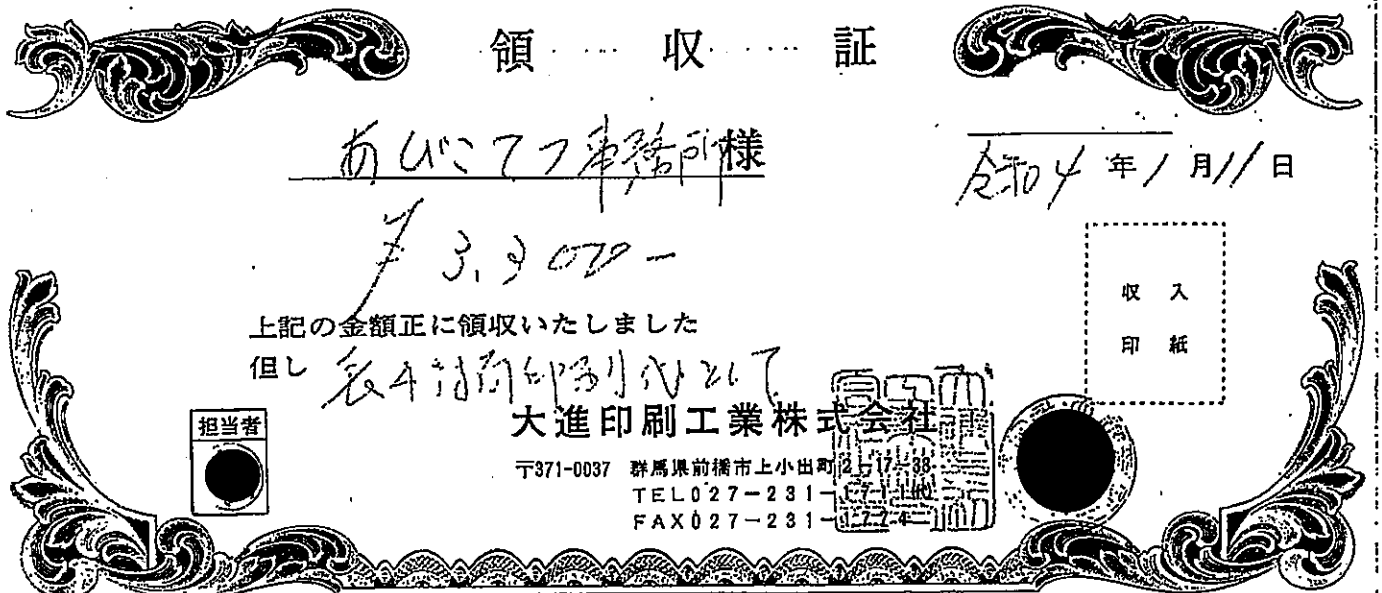 領収証
あびこてつ事務所様
令和4年1月11日
¥3,300-
収入
印紙
上記の金額正に領収いたしました
但し 封筒印刷代として
担当者
大進印刷工業株式会社
〒371-0037 群馬県前橋市上小出町2-17-38
TEL027-231-1711㈹
FAX027-231-1774